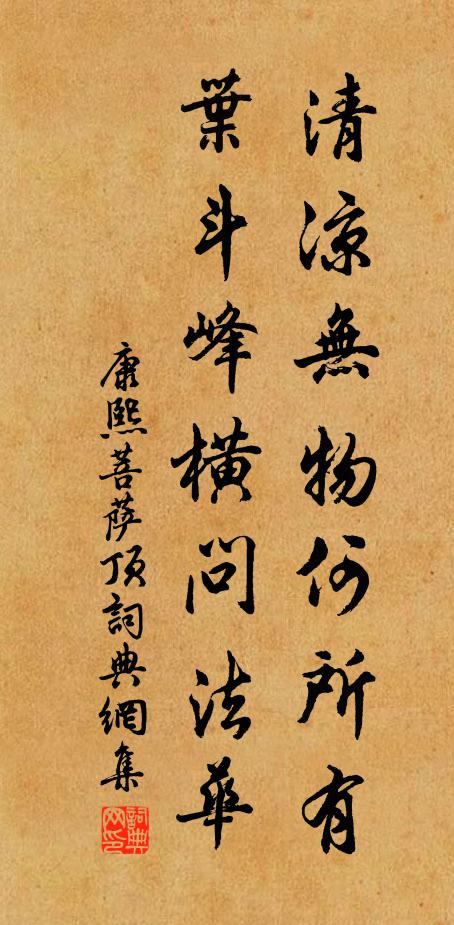 清涼無物何所有
葉斗峰橫問法華
康熙菩薩頂詞典網集
詞典網印